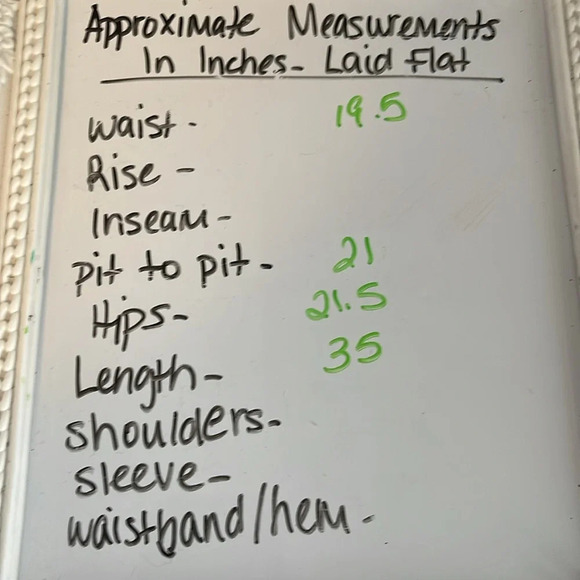 Approximate Measurements
In Inches- Laid Flat
Waist- 19.5
Rise -
Inseam-
Pit to pit- 21
Hips- 21.5
Length- 35
Shoulders-
Sleeve-
Waistband/hem-